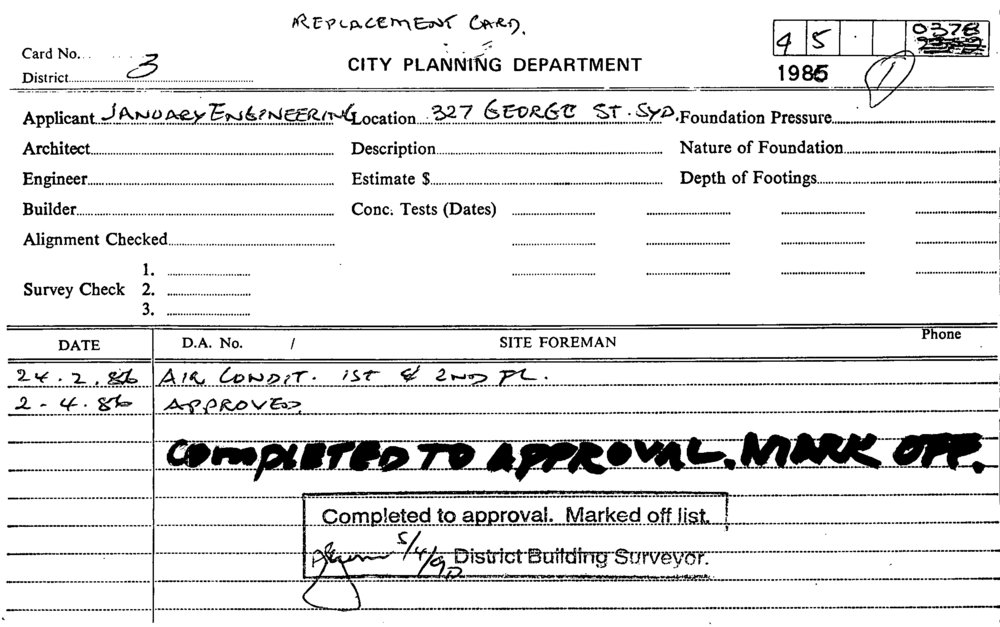 REPLACEMENT CARD.
45 0378
Card No.
CITY PLANNING DEPARTMENT
District 3
1986 1
Applicant JANUARY ENGINEERING Location 327 GEORGE ST. SYD. Foundation Pressure
Architect Description Nature of Foundation
Engineer Estimate $ Depth of Footings
Builder Conc. Tests (Dates)
Alignment Checked
1.
Survey Check 2.
3.
DATE D.A. No. / SITE FOREMAN Phone
24.2.86 AIR CONDIT. 1ST & 2ND FL.
2-4.86 APPROVED
COMPLETED TO APPROVAL. MARK OFF.
Completed to approval. Marked off list.
5/4/90 District Building Surveyor.